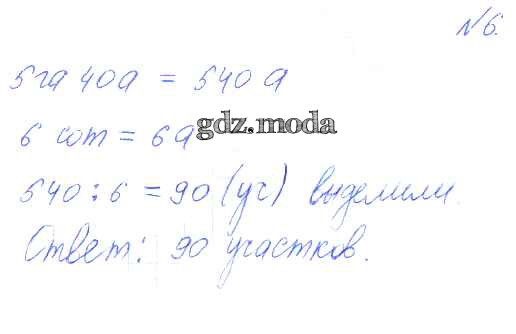 №6.
5 га 40 а = 540 а
6 сот = 6 а
gdz.moda
540 : 6 = 90 (уч) выделили.
Ответ: 90 участков.